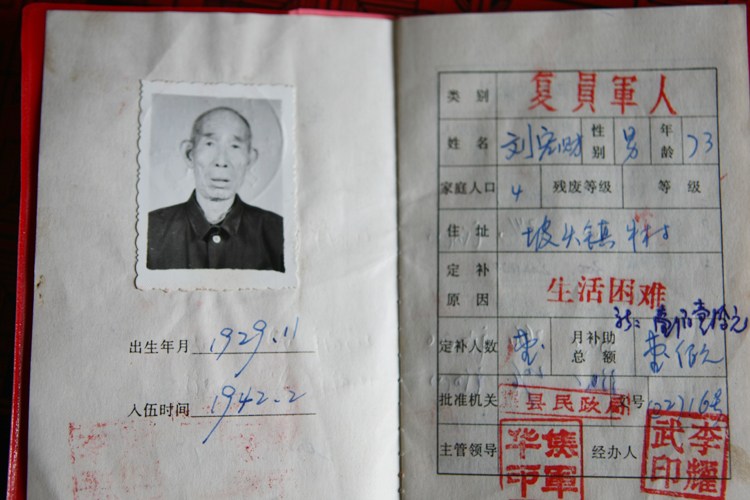 出生年月 1929.11
入伍时间 1942.2
类别 复員軍人
姓名 刘宏财 性别 男 年龄 73
家庭人口 4 残废等级 等级
住址 坡头镇 村
定补原因 生活困难
定补人数 壹 月补助总额 壹佰元
批准机关 县民政局 号 022716号
主管领导 经办人
李耀武印